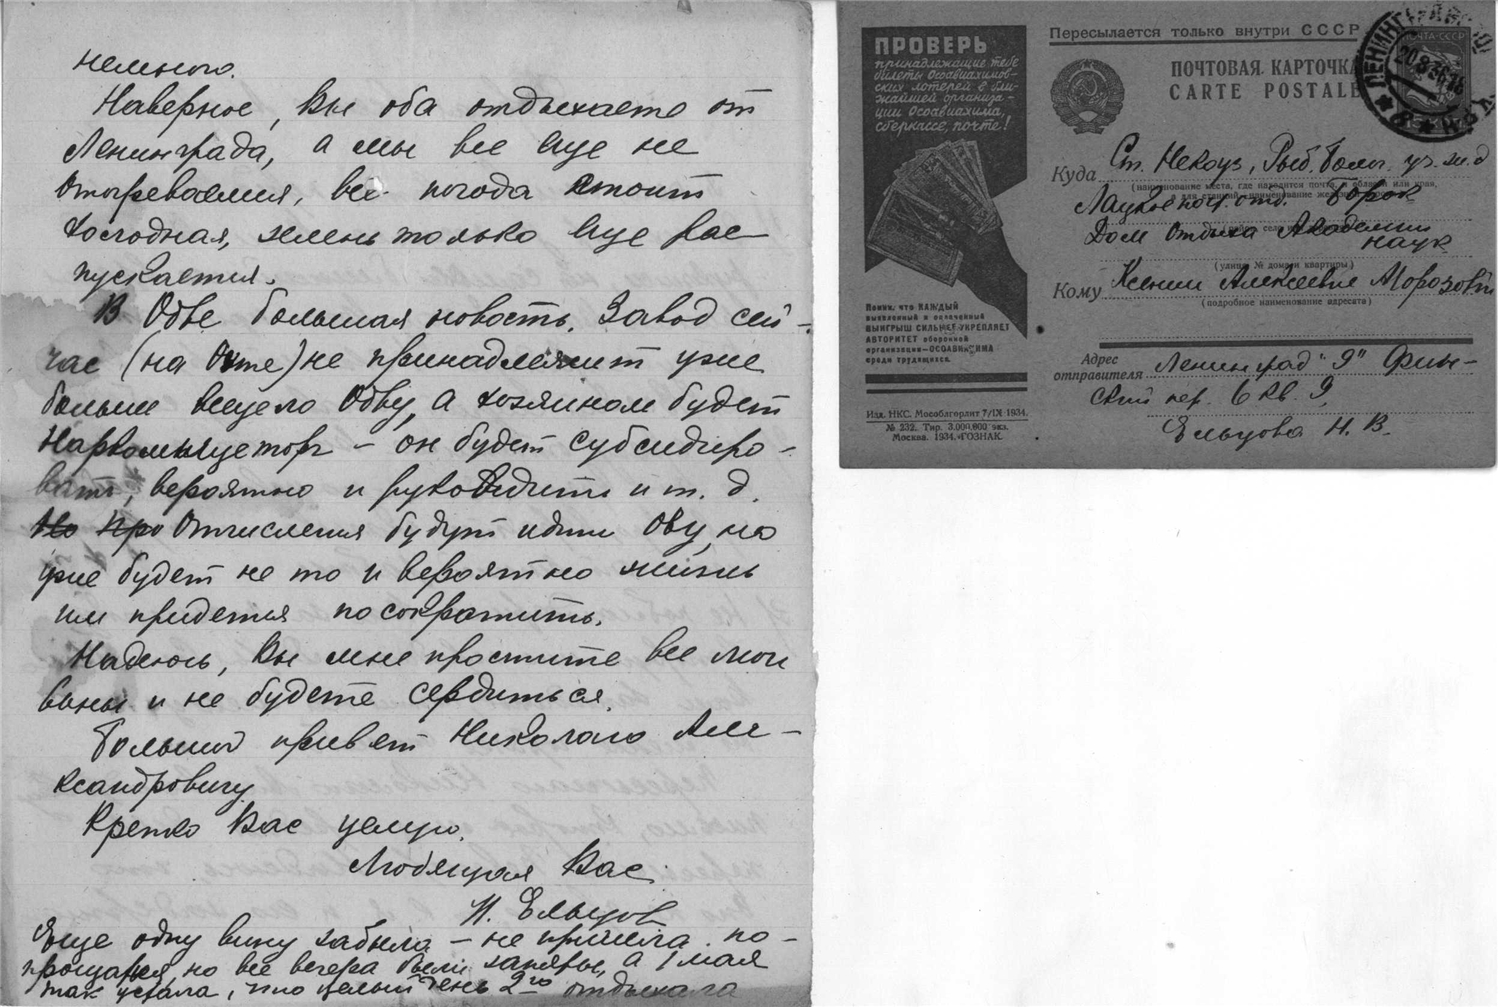 немного.
Наверное, Вы оба отдыхаете от
Ленинграда, а мы все еще не
отогреваемся, все погода стоит
холодная, зелень только еще рас
пускается.
В Одве большая новость. Завод сей-
час (на Охте) не принадлежит уже
больше всецело Одву, а хозяином будет
Наркомпищеторг – он будет субсидиро-
вать, вероятно и руководить и т. д.
Но про Отчисления будут идти Ову, но
уже будет не то и вероятно жизнь
им придется посократить.
Надеюсь, Вы мне простите все мои
вины и не будете сердиться.
Большой привет Николаю Але-
ксандровичу
Крепко Вас целую.
Любящая Вас
Н. Ельцов
Еще одну вину забыла – не пришла по-
прощаться, но все вечера были заняты, а 1 мая
так устала, что целый день 2го отдыхала
ПРОВЕРЬ
принадлежащие тебе
билеты Осоавиахимов-
ских лотерей в бли-
жайшей организа-
ции Осоавиахима,
сберкассе, почте!
Помни, что КАЖДЫЙ
выявленный и оплаченный
ВЫИГРЫШ СИЛЬНЕЕ УКРЕПЛЯЕТ
АВТОРИТЕТ оборонной
организации–ОСОАВИАХИМА
среди трудящихся.
Изд. НКС. Мособлгорлит 7/IX 1934.
№ 232. Тир. 3.000.000 экз.
Москва. 1934. «ГОЗНАК.
Пересылается только внутри СССР
ПОЧТОВАЯ КАРТОЧКА
CARTE POSTALE
ПОЧТА СССР
ЛЕНИНГРАД
20 8 36 18
Куда Ст. Некоуз, Рыб. Болог. уч. ж. д
(наименование места, где находится почта, и области или края,
почт. отд. Борок
Дом Отдыха Академии
наук
(улица, № дома и квартиры)
Кому Ксении Алексеевне Морозовой
(подробное наименование адресата)
Адрес
отправителя Ленинград "9" Фин-
ский пер. 6 кв. 9,
Ельцова Н. В.